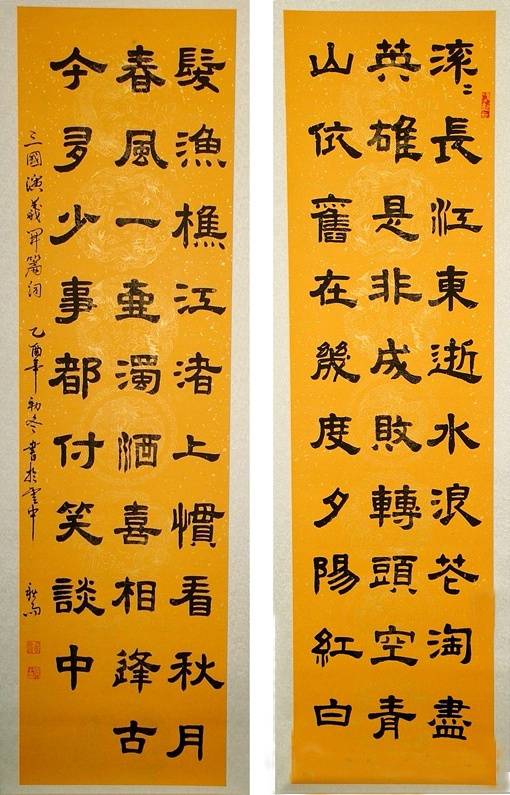 滚〻長江東逝水浪花淘盡
英雄是非成敗轉頭空青
山依舊在幾度夕陽紅白
髮漁樵江渚上慣看秋月
春風一壺濁酒喜相逢古
今多少事都付笑談中
三國演義開篇詞 乙酉年初冬書於雲中